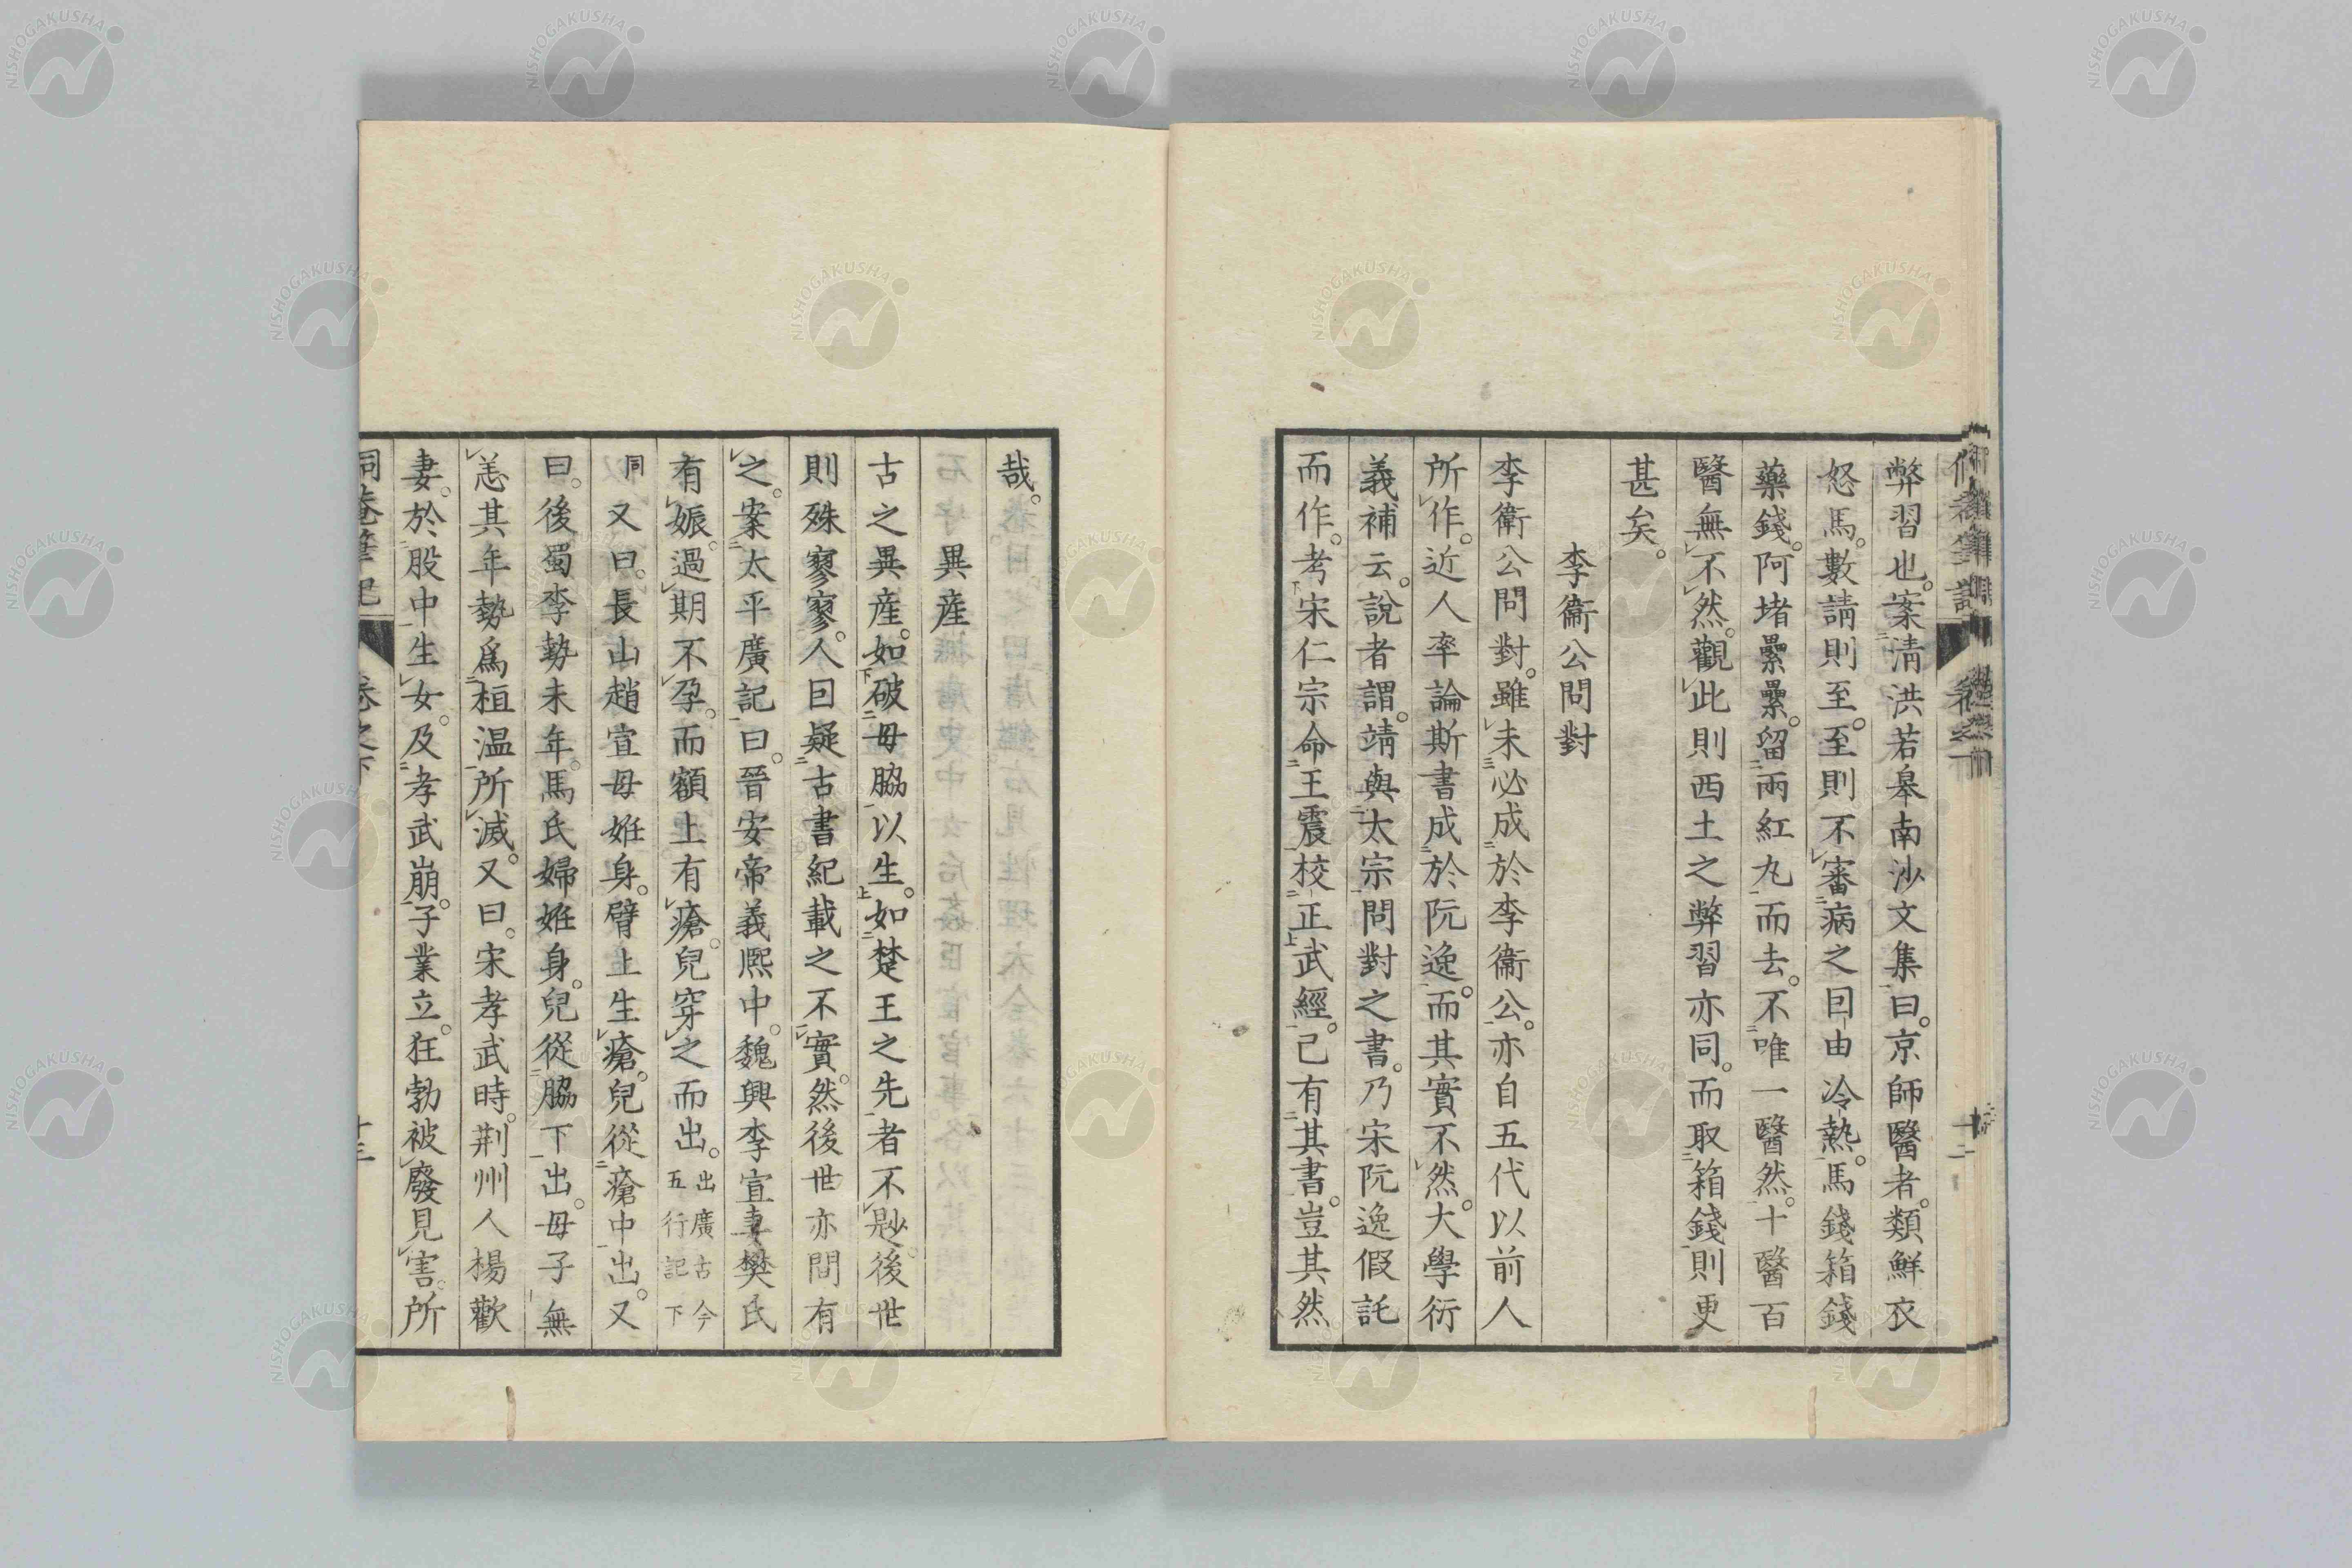 弊習也。案清洪若皋南沙文集曰。京師醫者。類鮮衣
怒馬。數請則至。至則不審病之囙由冷熱。馬錢箱錢
藥錢。阿堵纍纍。留兩紅丸而去。不唯一醫然。十醫百
醫無不然。觀此則西土之弊習亦同。而取箱錢則更
甚矣。
李衞公問對
李衞公問對。雖未必成於李衞公。亦自五代以前人
所作。近人率論斯書成於阮逸。而其實不然。大學衍
義補云。說者謂。靖與太宗問對之書。乃宋阮逸假託
而作。考宋仁宗命王震校正武經。已有其書。豈其然
哉。
異産
古之異産。如破母脇以生。如楚王之先者不尠。後世
則殊寥寥。人囙疑古書紀載之不實。然後世亦間有
之。案太平廣記曰。晉安帝義熙中。魏興李宣妻樊氏
有娠。過期不孕。而額上有瘡。兒穿之而出。出廣古今五行記下
同又曰。長山趙宣母姙身。臂上生瘡。兒從瘡中出。又
曰。後蜀李勢未年。馬氏婦姙身。兒從脇下出。母子無
恙其年勢爲桓温所滅。又曰。宋孝武時。荆州人楊歡
妻。於股中生女。及孝武崩。子業立。狂勃被廢見害。所
侗菴筆記 卷之下 十三